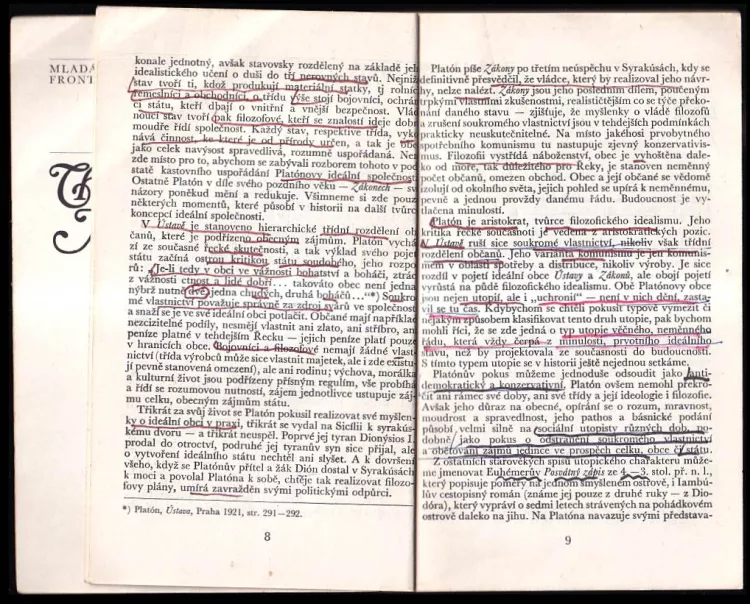 MLADÁ
FRONT
konale jednotný, avšak stavovsky rozdělený na základě jeh
idealistického učení o duši do tří nerovných stavů. Nejniž
stav tvoří ti, kdož produkují materiální statky, tj rolníc
řemeslníci a obchodníci, o třídu výše stojí bojovníci, ochrán
ci státu, kteří dbají o vnitřní a vnější bezpečnost. Vlád
noucí stav tvoří pak filosofové, kteří se znalostí ideje dobr
moudře řídí společnost. Každý stav, respektive třída, vyko
nává činnost, ke které je od přírody určen, a tak je obe
jako celek navýsost spravedlivá, rozumně uspořádaná. Nen
zde místo pro to, abychom se zabývali rozborem tohoto v pod
statě kastovního uspořádání Platónovy ideální společnost
Ostatně Platón v díle svého pozdního věku — Zákonech — sv
názory poněkud mění a redukuje. Všimneme si zde pouz
některých momentů, které působí v historii na další tvůrce
koncepcí ideální společnosti.
V Ústavě je stanoveno hierarchické třídní rozdělení ob
čanů, které je podřízeno obecným zájmům. Platón vychá
zí ze současné řecké skutečnosti, a tak výklad svého pojet
státu začíná ostrou kritikou státu soudobého, jeho rozpo
rů: „Je-li tedy v obci ve vážnosti bohatství a boháči, ztrác
z vážnosti ctnost a lidé dobří... takováto obec není jedna
nýbrž nutně dvě, jedna chudých, druhá boháčů...“*) Soukro
mé vlastnictví považuje správně za zdroj svárů ve společnost
a snaží se je ve své ideální obci potlačit. Občané mají například
nezcizitelné podíly, nesmějí vlastnit ani zlato, ani stříbro, an
peníze platné v tehdejším Řecku — jejich peníze platí pouze
v hranicích obce. Bojovníci a filozofové nemají žádné vlast-
nictví (třída výrobců může sice vlastnit majetek, ale i zde existu-
jí pevně stanovená omezení), ale ani rodinu; výchova, morálka
a kulturní život jsou podřízeny přísným regulím, vše probíhá
a řídí se rozumovou nutností, zájem jednotlivce ustupuje záj-
mu celku, obecným zájmům státu.
Třikrát za svůj život se Platón pokusil realizovat své myšlen-
ky o ideální obci v praxi, třikrát se vydal na Sicílii k syrakús-
kému dvoru — a třikrát neuspěl. Poprvé jej tyran Dionýsios I.
prodal do otroctví, podruhé jej tyranův syn sice přijal, ale
o vytvoření ideálního státu nechtěl ani slyšet. A k dovršení
všeho, když se Platónův přítel a žák Dión dostal v Syrakúsách
k moci a povolal Platóna k sobě, chtěje tak realizovat filozo-
fovy plány, umírá zavražděn svými politickými odpůrci.
*) Platón, Ústava, Praha 1921, str. 291—292.
8
Platón píše Zákony po třetím neúspěchu v Syrakúsách, kdy se
definitivně přesvědčil, že vládce, který by realizoval jeho návr-
hy, nelze nalézt. Zákony jsou jeho posledním dílem, poučeným
trpkými vlastními zkušenostmi, realističtějším co se týče překo-
nání daného stavu — zjišťuje, že myšlenky o vládě filosofů
a zrušení soukromého vlastnictví jsou v tehdejších podmínkách
prakticky neuskutečnitelné. Na místo jakéhosi prvobytného
spotřebního komunismu tu nastupuje zjevný konzervativis-
mus. Filozofii vystřídá náboženství, obec je vyhoštěna dale-
ko od moře, tak důležitého pro Řeky, je stanoven neměnný
počet občanů, omezen obchod. Obec a její občané se vědomě
izolují od okolního světa, jejich pohled se upírá k neměnnému,
pevně a jednou provždy danému řádu. Budoucnost je vy-
tlačena minulostí.
Platón je aristokrat, tvůrce filozofického idealismu. Jeho
kritika řecké současnosti je vedena z aristokratických pozic.
V Ústavě ruší sice soukromé vlastnictví, nikoliv však třídní
rozdělení občanů. Jeho varianta komunismu je jen komunis-
mem v oblasti spotřeby a distribuce, nikoliv výroby. Je sice
rozdíl v pojetí ideální obce Ústavy a Zákonů, ale obojí pojetí
vyrůstá na půdě filozofického idealismu. Obě Platónovy obce
jsou nejen utopií, ale i „uchronií“ — není v nich dění, zasta-
vil se tu čas. Kdybychom se chtěli pokusit typově vymezit či
nějakým způsobem klasifikovat tento druh utopie, pak bychom
mohli říci, že se zde jedná o typ utopie věčného, neměnného
řádu, která vždy čerpá z minulosti, prvotního ideálního
stavu, než by projektovala ze současnosti do budoucnosti.
S tímto typem utopie se v historii ještě nejednou setkáme.
Platónův pokus můžeme jednoduše odsoudit jako anti-
demokratický a konzervativní. Platón ovšem nemohl překro-
čit ani rámec své doby, ani své třídy a její ideologie i filosofie.
Avšak jeho důraz na obecné, opírání se o rozum, mravnost,
moudrost a spravedlnost, jeho pathos a básnické podání
působí velmi silně na sociální utopisty různých dob, po-
dobně jako pokus o odstranění soukromého vlastnictví
a obětování zájmů jedince ve prospěch celku, obce či státu.
Z ostatních starověkých spisů utopického charakteru může-
me jmenovat Euhémerův Posvátný zápis ze 4.—3. stol. př. n. l.,
který popisuje poměry na jednom smyšleném ostrově, i Iambú-
lův cestopisný román (známe jej pouze z druhé ruky — z Dio-
dóra), který vypráví o sedmi letech strávených na pohádkovém
ostrově daleko na jihu. Na Platóna navazuje svými představa-
9